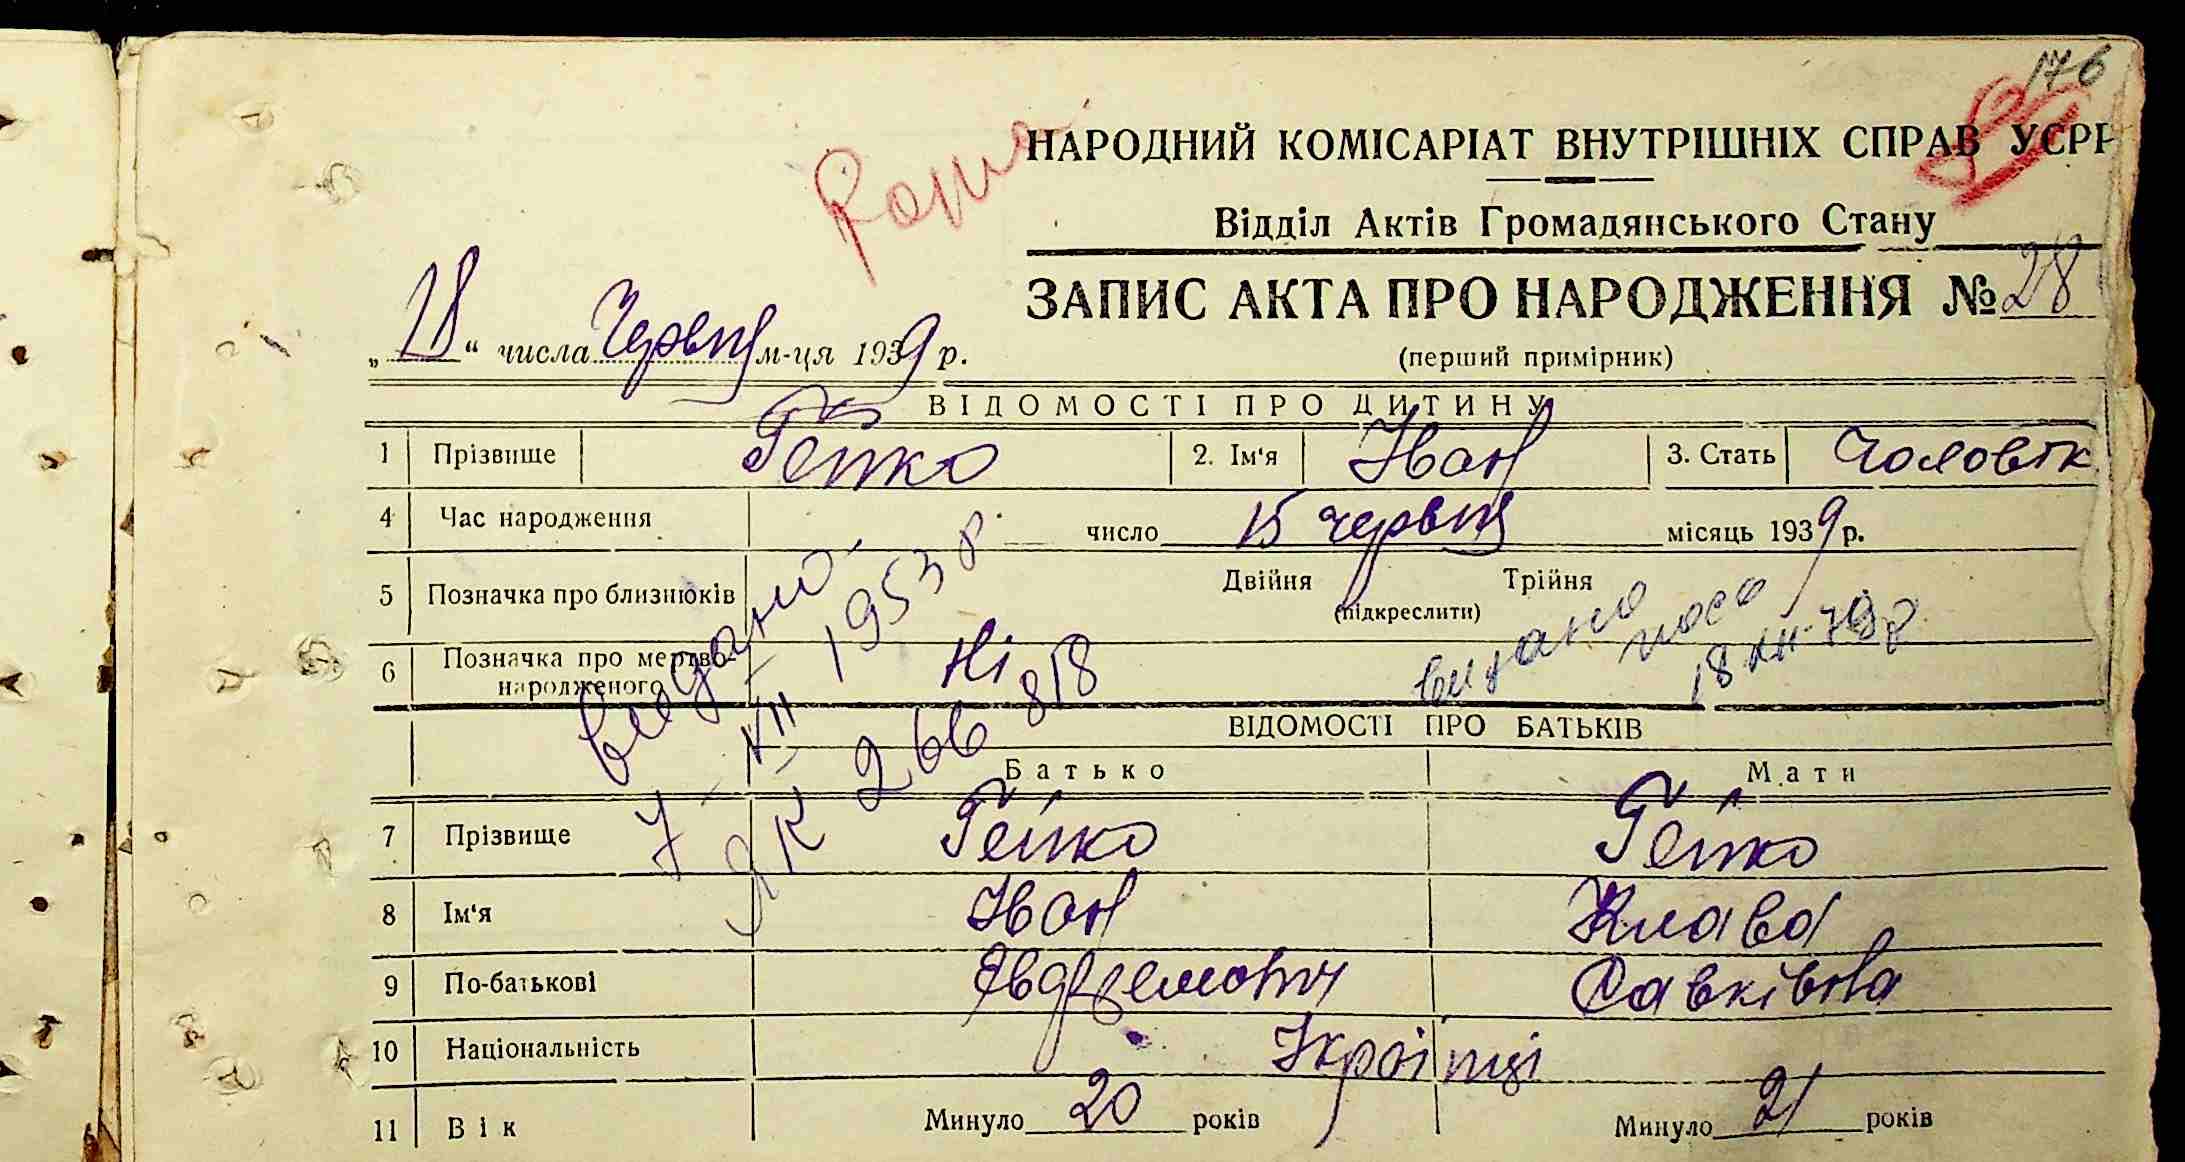 176
НАРОДНИЙ КОМІСАРІАТ ВНУТРІШНІХ СПРАВ УСРР
Відділ Актів Громадянського Стану
ЗАПИС АКТА ПРО НАРОДЖЕННЯ № 28
„18“ числа Червня м-ця 1939 р.
(перший примірник)
ВІДОМОСТІ ПРО ДИТИНУ
1 Прізвище Гейко 2. Ім'я Іван 3. Стать Чоловік
4 Час народження число 15 червня місяць 1939 р.
5 Позначка про близнюків Двійня Трійня
(підкреслити)
6 Позначка про мертво-
народженого Ні
видано
7 VII 1953 р.
ЯК 266818
видано
18 XII-79 р
ВІДОМОСТІ ПРО БАТЬКІВ
Батько Мати
7 Прізвище Гейко Гейко
8 Ім'я Іван Клава
9 По-батькові Савківна
10 Національність Україінці
11 Вік Минуло 20 років Минуло 21 років